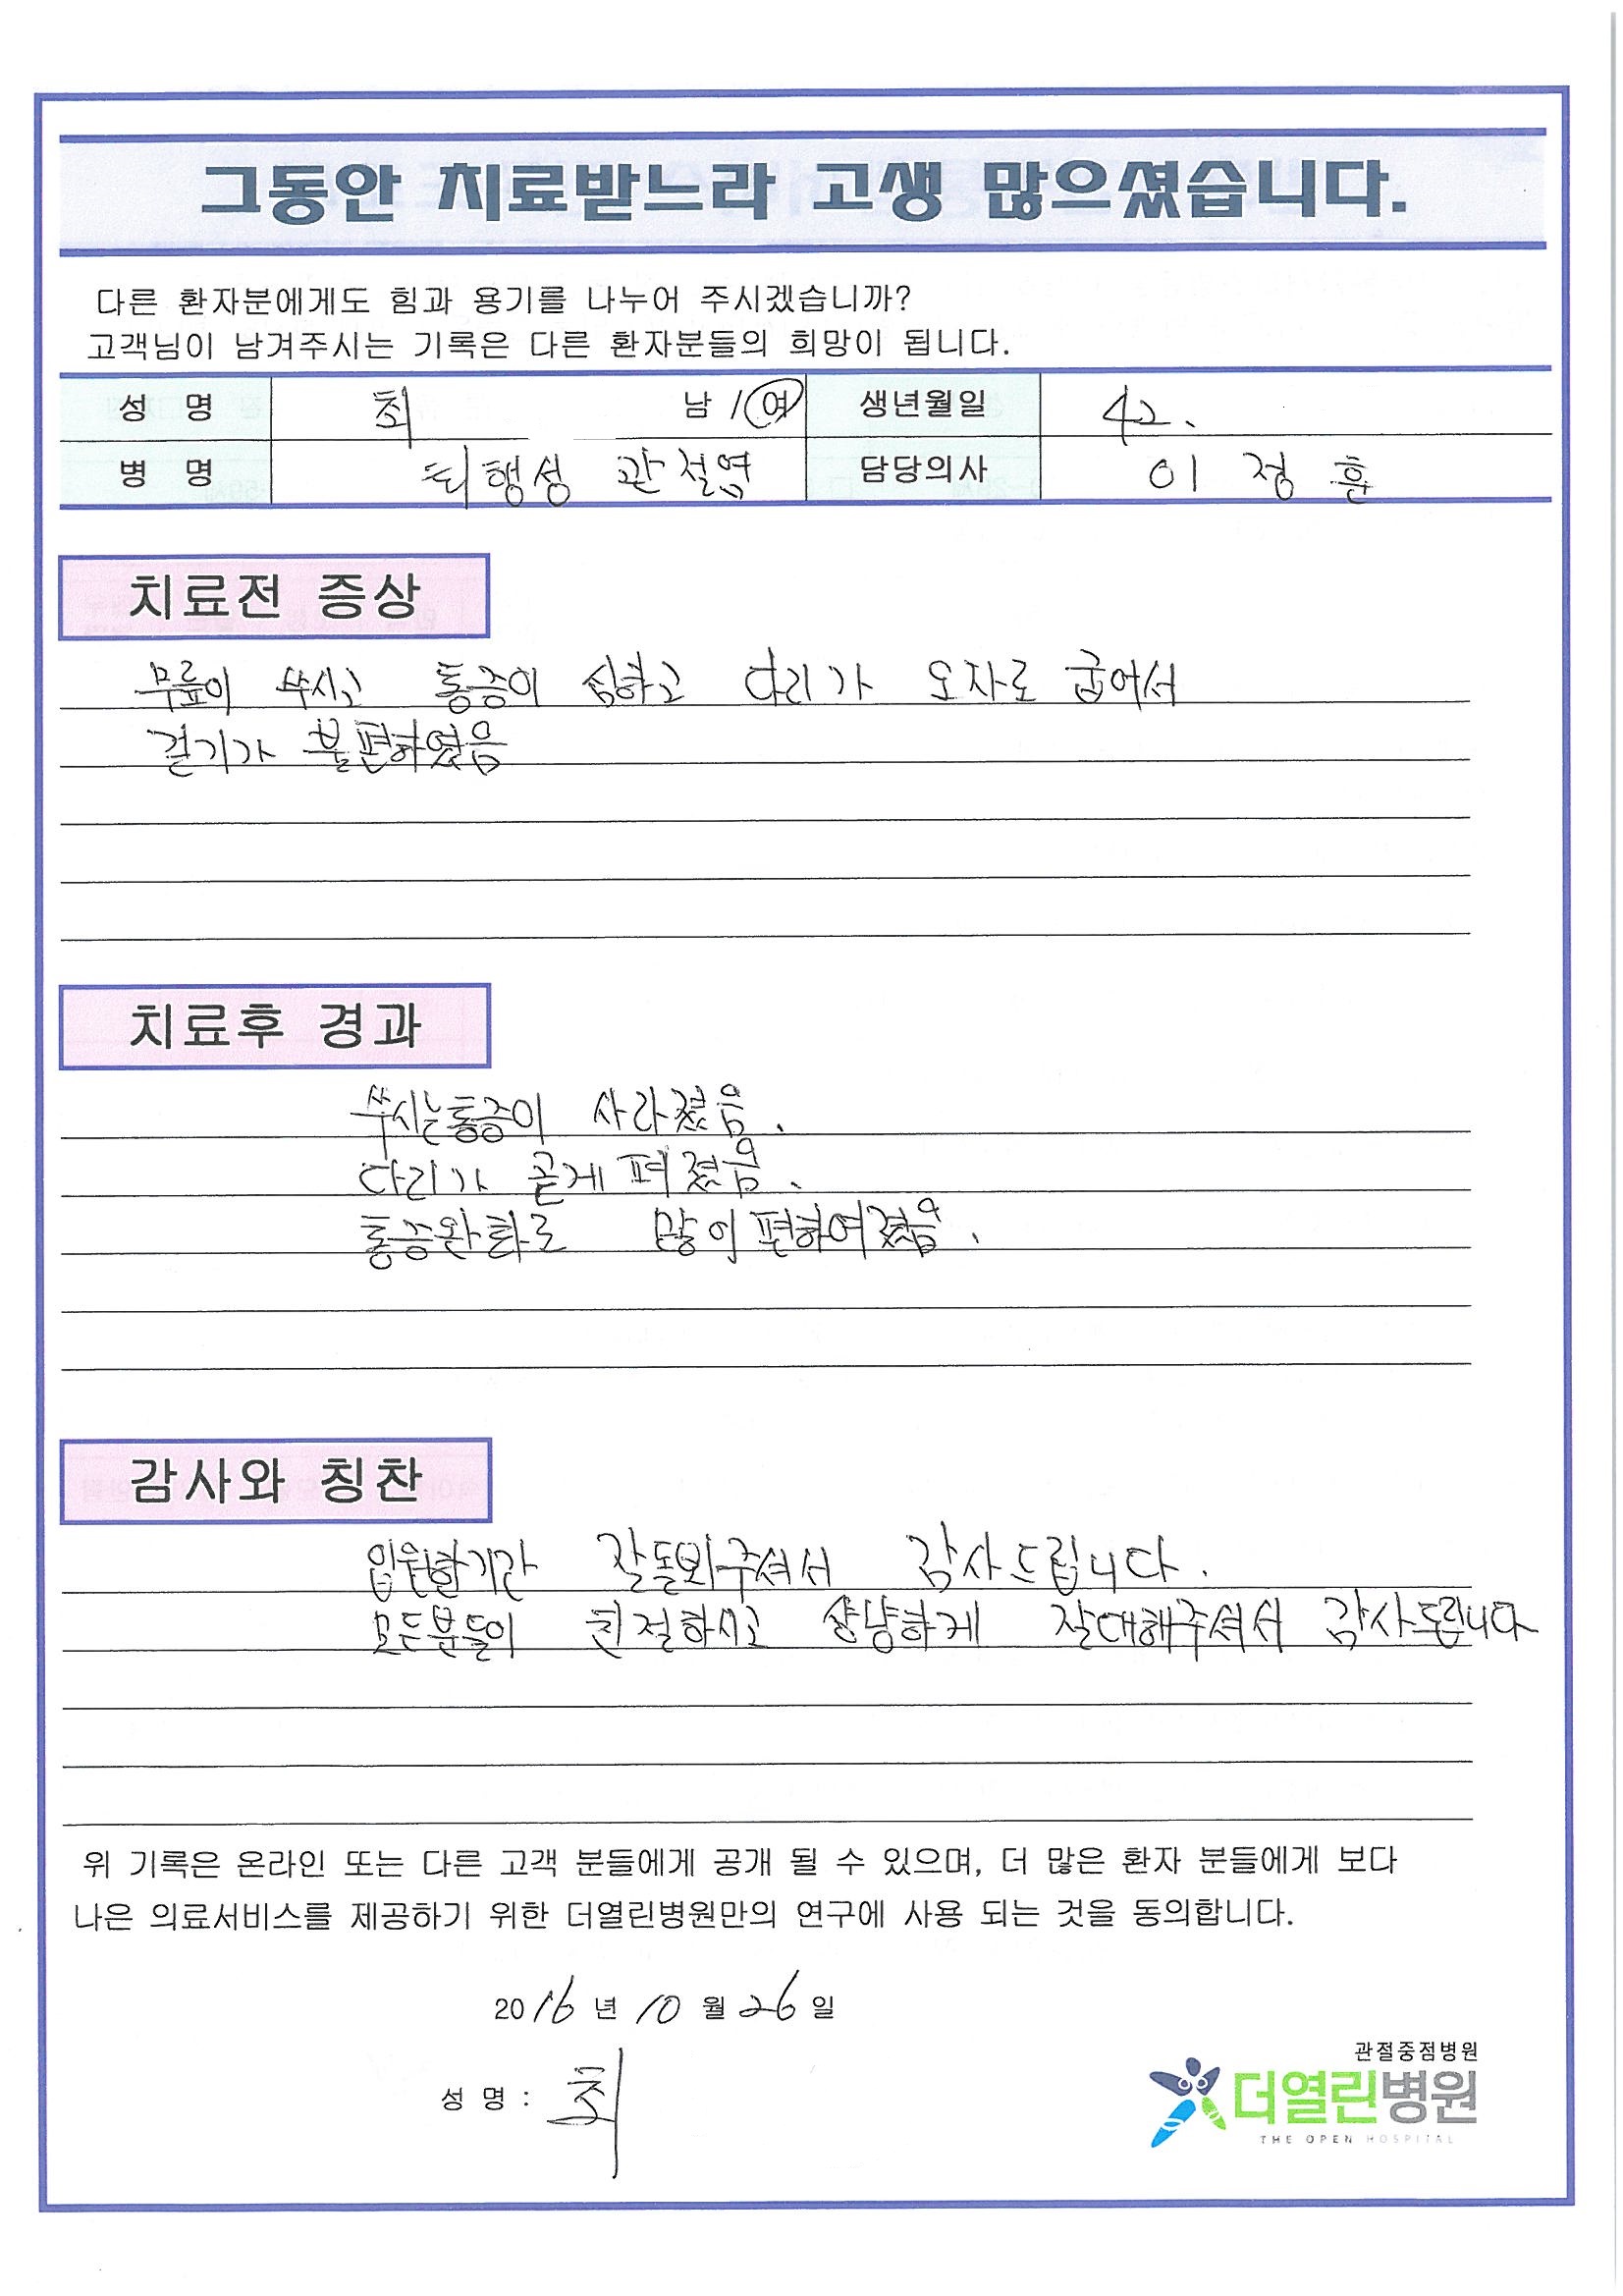 그동안 치료받느라 고생 많으셨습니다.
다른 환자분에게도 힘과 용기를 나누어 주시겠습니까?
고객님이 남겨주시는 기록은 다른 환자분들의 희망이 됩니다.
성 명 최 남 / 여 생년월일 42.
병 명 퇴행성 관절염 담당의사 이 정 훈
치료전 증상
무릎이 쑤시고 통증이 심하고 다리가 오자로 굽어서
걷기가 불편하였음
치료후 경과
쑤시는통증이 사라졌음.
다리가 곧게 펴졌음.
통증완화로 많이 편하여졌음.
감사와 칭찬
입원한기간 잘돌봐주셔서 감사드립니다.
모든분들이 친절하시고 상냥하게 잘대해주셔서 감사드립니다
위 기록은 온라인 또는 다른 고객 분들에게 공개 될 수 있으며, 더 많은 환자 분들에게 보다
나은 의료서비스를 제공하기 위한 더열린병원만의 연구에 사용 되는 것을 동의합니다.
2016년 10월 26일
성 명 : 최
관절중점병원
더열린병원
THE OPEN HOSPITAL